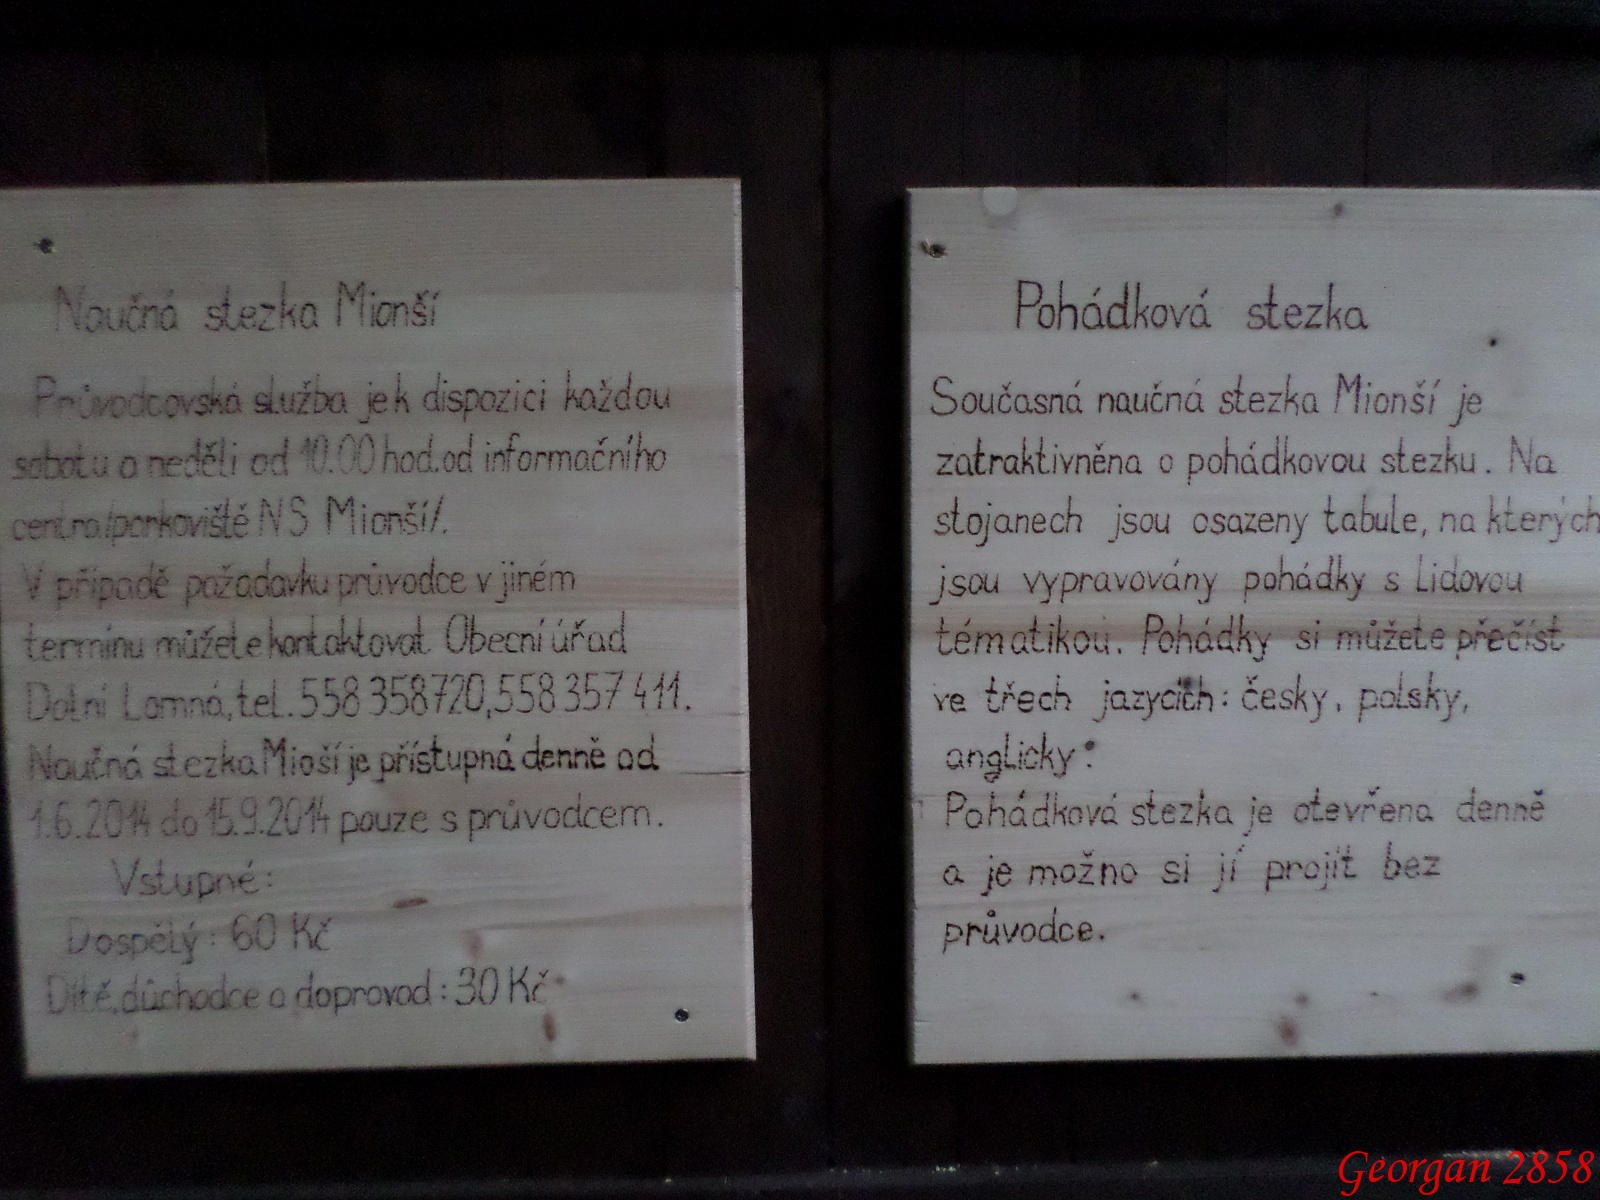 Naučná stezka Mionší
Průvodcovská služba je k dispozici každou
sobotu a neděli od 10.00 hod. od informačního
centra/parkoviště NS Mionší/.
V případě požadavku průvodce v jiném
termínu můžete kontaktovat Obecní úřad
Dolní Lomná, tel. 558 358720, 558 357 411.
Naučná stezka Mioší je přístupná denně od
1.6.2014 do 15.9.2014 pouze s průvodcem.
Vstupné:
Dospělý: 60 Kč
Dítě, důchodce a doprovod: 30 Kč
Pohádková stezka
Současná naučná stezka Mionší je
zatraktivněna o pohádkovou stezku. Na
stojanech jsou osazeny tabule, na kterých
jsou vypravovány pohádky s lidovou
tématikou. Pohádky si můžete přečíst
ve třech jazycích: česky, polsky,
anglicky.
Pohádková stezka je otevřena denně
a je možno si jí projít bez
průvodce.
Georgan 2858